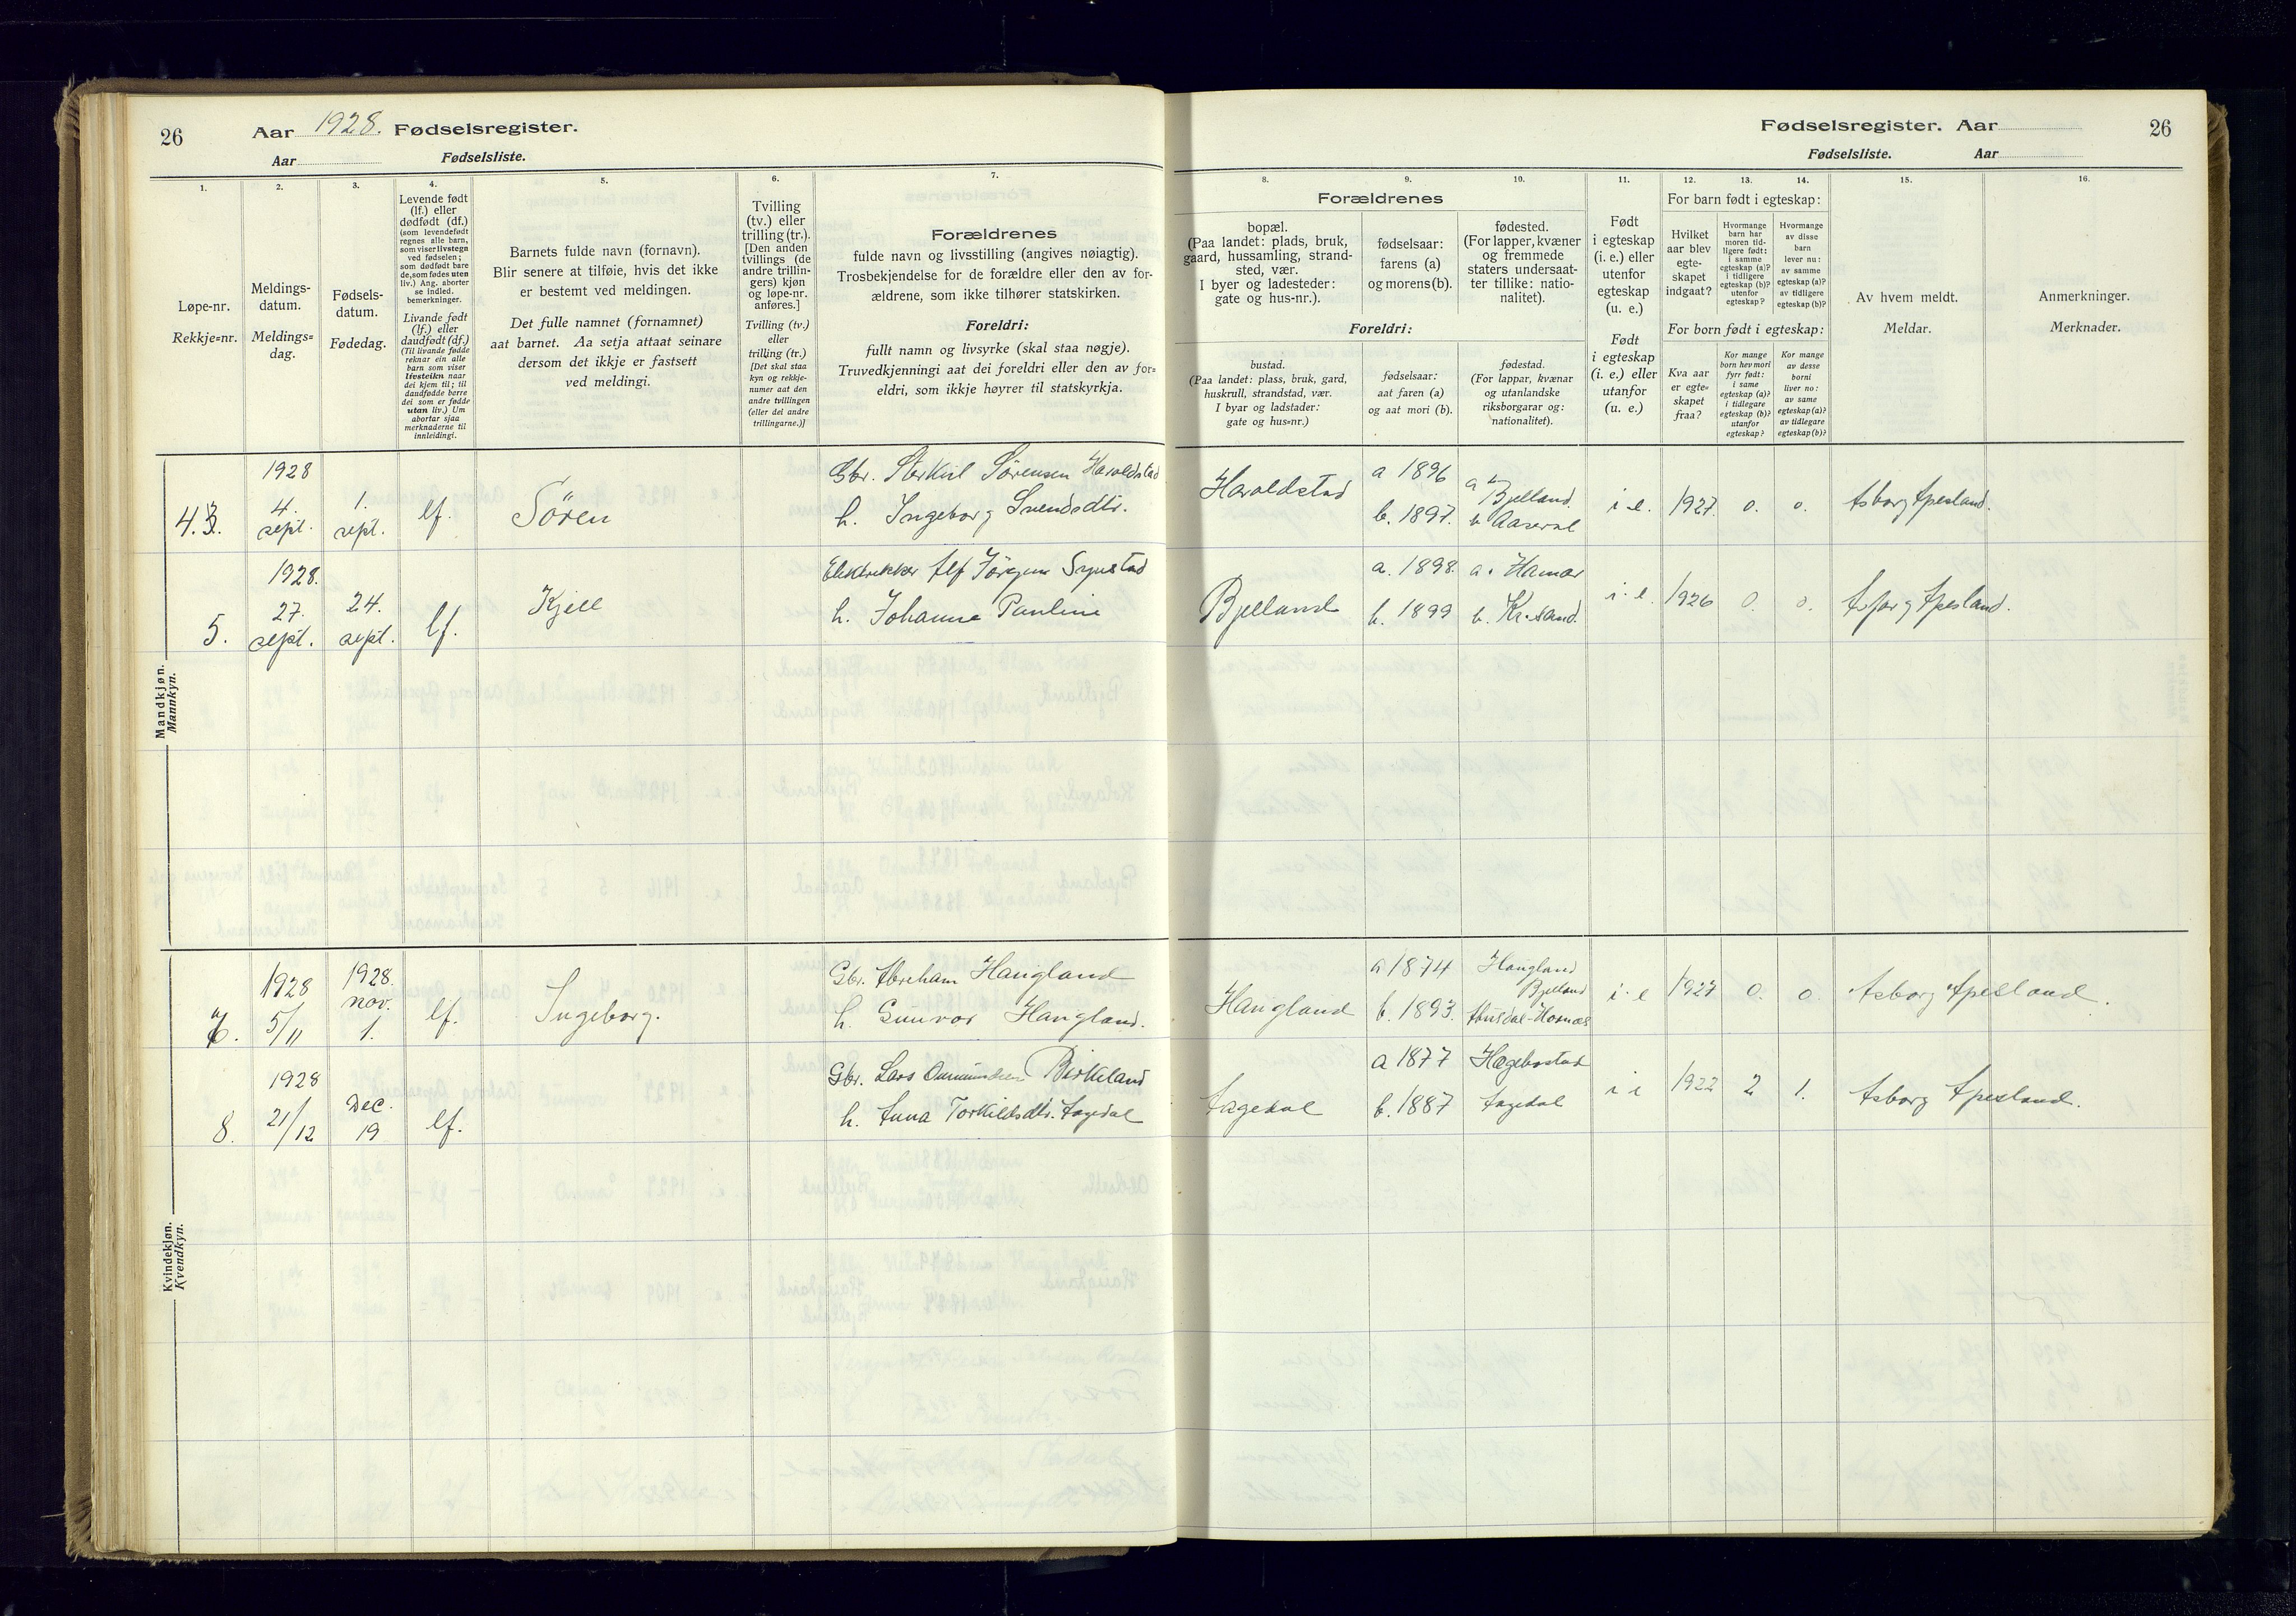 26
Aar 1928. Fødselsregister.
Aar Fødselsliste.
1.
Løpe-nr.
Rekkje=nr.
2.
Meldings-
datum.
Meldings=
dag.
3.
Fødsels-
datum.
Fødedag.
4.
Levende født
(lf.) eller
dødfødt (df.)
(som levendefødt
regnes alle barn,
som viser livstegn
ved fødselen;
som dødfødt bare
de, som fødes uten
liv.) Ang. aborter
se indled.
bemerkninger.
Livande født
(lf.) eller
daudfødt (df.)
(Til livande fødde
reknar ein alle
barn som viser
livsteikn naar
dei kjem til; til
daudfødde berre
dei som er fødde
utan liv.) Um
abortar sjaa
merknaderne til
innleidingi.
5.
Barnets fulde navn (fornavn).
Blir senere at tilføie, hvis det ikke
er bestemt ved meldingen.
Det fulle namnet (fornamnet)
aat barnet. Aa setja attaat seinare
dersom det ikkje er fastsett
ved meldingi.
6.
Tvilling
(tv.) eller
trilling (tr.).
[Den anden
tvillings (de
andre trillin-
gers) kjøn
og løpe-nr.
anføres.]
Tvilling (tv.)
eller
trilling (tr.)
[Det skal staa
kyn og rekkje-
numer aat den
andre tvillingen
(eller dei andre
trillingarne.)]
7.
Forældrenes
fulde navn og livsstilling (angives nøiagtig).
Trosbekjendelse for de forældre eller den av for-
ældrene, som ikke tilhører statskirken.
Foreldri:
fullt namn og livsyrke (skal staa nøgje).
Truvedkjenningi aat dei foreldri eller den av for=
eldri, som ikkje høyrer til statskyrkja.
Mandkjøn.
Mannkyn.
1928
4.
sept.
1.
sept.
lf.
Sören
Gbr. Sørensen Haraldstad
h. Ingeborg Svendsdtr.
5.
1928.
27.
sept.
24.
sept.
lf.
Kjell
Jörgen
h. Johanne Pauline
Kvindekjøn.
Kvendkyn.
1928
5/11
1928.
nov.
1.
lf.
Ingeborg.
Gbr. Abraham Haugland
h. Gunvor Haugland.
8.
1928
21/12
Dec.
19
lf.
Gbr. Lars Birkeland
h. Anna Torkildsdtr. Fagedal
Fødselsregister. Aar
26
Fødselsliste. Aar
Forældrenes
8.
bopæl.
(Paa landet: plads, bruk,
gaard, hussamling, strand-
sted, vær.
I byer og ladesteder:
gate og hus-nr.).
9.
fødselsaar:
farens (a)
og morens (b).
10.
fødested.
(For lapper, kvæner
og fremmede
staters undersaat-
ter tillike: natio-
nalitet).
Foreldri:
bustad.
(Paa landet: plass, bruk, gard,
huskrull, strandstad, vær.
I byar og ladstader:
gate og hus=nr.)
fødselsaar:
aat faren (a)
og aat mori (b).
fødestad.
(For lappar, kvænar
og utanlandske
riksborgarar og:
nationalitet).
11.
Født
i egteskap
(i. e.) eller
utenfor
egteskap
(u. e.)
Født
i egteskap
(i. e.) eller
utanfor
(u. e.)
For barn født i egteskap:
12.
Hvilket
aar blev
egte-
skapet
indgaat?
13.
Hvormange
barn har
moren tid-
ligere født:
i samme
egteskap (a)?
i tidligere
egteskap (b)?
utenfor
egteskap?
14.
Hvormange
av disse
barn
lever nu:
av samme
egteskap (a)?
av tidligere
egteskap (b)?
For born født i egteskap:
Kva aar
er egte=
skapet
fraa?
Kor mange
born hev mori
fyrr født:
i same
egteskap (a)?
i tidlegare
egteskap (b)?
utanfor
egteskap?
Kor mange
av desse
borni
liver no:
av same
egteskap (a)?
av tidlegare
egteskap (b)?
15.
Av hvem meldt.
Meldar.
16.
Anmerkninger.
Merknader.
Haraldstad
a 1896
b. 1897.
a Bjelland.
b Aaseral
i e. 1927. 0. 0. Asborg Apesland.
Bjelland
a. 1898.
b. 1899
a. Hamar
b. Kr.sand.
i. e. 1926 0. 0. Asborg Apesland.
Haugland
a 1874
b. 1893.
Haugland
Bjelland
i. e 1927 0. 0. Asborg Apesland.
a 1877
b. 1887
Hægebostad
i e 1922 2 1. Asborg Apesland.